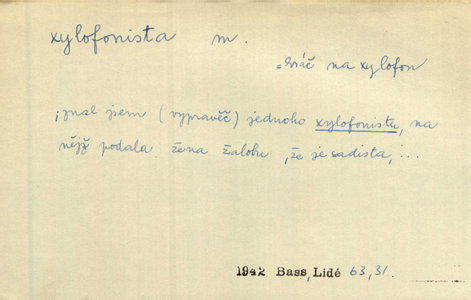 xylofonista m.
=hráč na xylofon
znal jsem (vypravěč) jednoho xylofonistu, na
nějž podala žena žalobu, že je sadista, ...
1942 Bass, Lidé 63,31.